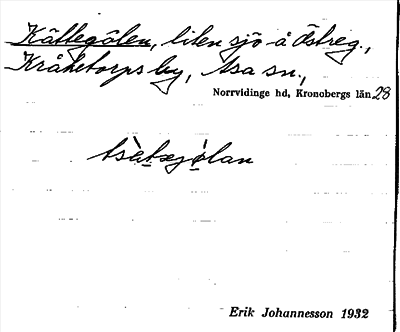 Kättegölen, liten sjö å Östreg.,
Kråketorps by, Asa sn.,
Norrvidinge hd, Kronobergs län 28
Erik Johannesson 1932